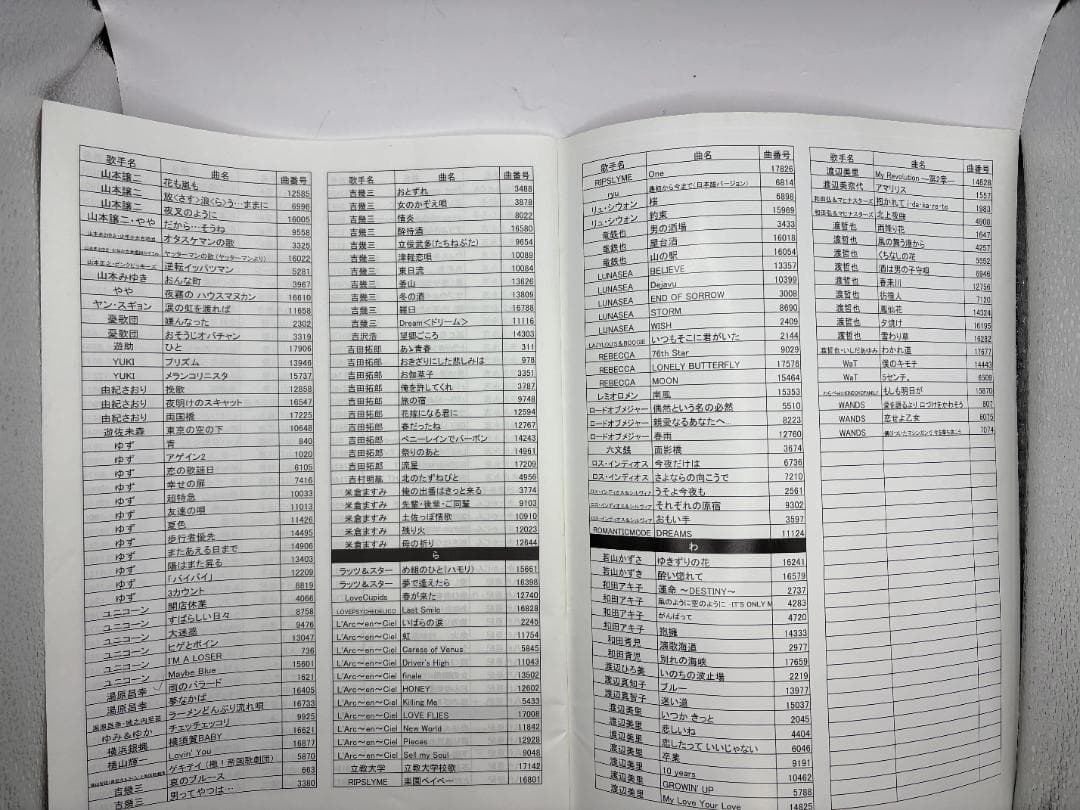 歌手名 曲名 曲番号
山本譲二 花も嵐も 12585
山本譲二 放(さす)浪(らい)う…ままに 6996
山本譲二 夜叉のように 16005
山本譲二・やや だから…そうね 9558
オタスケマンの歌 3325
ヤッターマンの歌(ヤッターマンより) 16022
逆転イッパツマン 5281
山本みゆき おんな町 3967
やや 夜霧の ハウスマヌカン 16610
ヤン・スギョン 涙の虹を渡れば 11658
憂歌団 嫌んなった 2302
憂歌団 おそうじオバチャン 3319
遊助 ひと 17906
YUKI プリズム 13946
YUKI メランコリニスタ 15737
由紀さおり 挽歌 12858
由紀さおり 夜明けのスキャット 16547
由紀さおり 両国橋 17225
遊佐未森 東京の空の下 10648
ゆず 青 840
ゆず アゲイン2 1020
ゆず 恋の歌謡日 6105
ゆず 幸せの扉 7416
ゆず 超特急 10033
ゆず 友達の唄 11013
ゆず 夏色 11426
ゆず 歩行者優先 14495
ゆず またあえる日まで 14906
ゆず 陽はまた昇る 13403
ゆず 「バイバイ」 12209
ゆず 3カウント 8819
ユニコーン 開店休業 4066
ユニコーン すばらしい日々 8758
ユニコーン 大迷惑 9476
ユニコーン ヒゲとボイン 13047
ユニコーン I'M A LOSER 736
ユニコーン Maybe Blue 15601
湯原昌幸 雨のバラード 1621
湯原昌幸 夢なかば 16405
ラーメンどんぶり流れ唄 16733
ゆみ&ゆか チェッチェッコリ 9925
横浜銀蝿 横須賀BABY 16621
横山輝一 Lovin' You 16877
ゲキテイ(檄!帝国歌劇団) 5870
吉幾三 哀のブルース 663
吉幾三 男ってやつは… 3380
歌手名 曲名 曲番号
吉幾三 おとずれ 3488
吉幾三 女のかぞえ唄 3878
吉幾三 情炎 8022
吉幾三 酔待酒 16580
吉幾三 立佞武多(たちねぶた) 9654
吉幾三 津軽恋唄 10089
吉幾三 東日流 10084
吉幾三 釜山 13626
吉幾三 冬の酒 13809
吉幾三 蘿日 16788
吉幾三 Dream<ドリーム> 11116
吉沢浩 望郷ごころ 14303
吉田拓郎 あゝ青春 311
吉田拓郎 おきざりにした悲しみは 978
吉田拓郎 お伽草子 3351
吉田拓郎 俺を許してくれ 3787
吉田拓郎 旅の宿 9748
吉田拓郎 花嫁になる君に 12594
吉田拓郎 春だったね 12767
吉田拓郎 ペニーレインでバーボン 14243
吉田拓郎 祭りのあと 14961
吉田拓郎 流星 17209
吉村明紘 北のたずねびと 4956
米倉ますみ 俺の出番はきっと来る 3774
米倉ますみ 先輩・後輩・ご同輩 9103
米倉ますみ 土佐っぽ情歌 10910
米倉ますみ 残り火 12023
米倉ますみ 母の祈り 12644
ら
ラッツ&スター め組のひと(ハモリ) 15661
ラッツ&スター 夢で逢えたら 16398
LoveCupids 春が来た 12740
LOVEPSYCHEDELICO Last Smile 16828
L'Arc~en~Ciel いばらの涙 2245
L'Arc~en~Ciel 虹 11754
L'Arc~en~Ciel Caress of Venus 5845
L'Arc~en~Ciel Driver's High 11043
L'Arc~en~Ciel finale 13502
L'Arc~en~Ciel HONEY 12602
L'Arc~en~Ciel Killing Me 5433
L'Arc~en~Ciel LOVE FLIES 17008
L'Arc~en~Ciel New World 11842
L'Arc~en~Ciel Pieces 12928
L'Arc~en~Ciel Sell my Soul 9048
立教大学 立教大学校歌 17142
RIPSLYME 楽園ベイベー 16801
歌手名 曲名 曲番号
RIPSLYME One 17826
ryu 最初から今まで(日本語バージョン) 6814
リュ・シウォン 桜 6896
リュ・シウォン 約束 15969
竜鉄也 男の酒場 3433
竜鉄也 屋台酒 16018
竜鉄也 山の駅 16054
LUNASEA BELIEVE 13357
LUNASEA Dejavu 10399
LUNASEA END OF SORROW 3008
LUNASEA STORM 8690
LUNASEA WISH 2409
いつもそこに君がいた 2144
REBECCA 76th Star 9029
REBECCA LONELY BUTTERFLY 17576
REBECCA MOON 15464
レミオロメン 南風 15353
ロードオブメジャー 偶然という名の必然 5510
ロードオブメジャー 親愛なるあなたへ… 8223
ロードオブメジャー 春雨 12760
六文銭 面影橋 3674
ロス・インディオス 今夜だけは 6736
ロス・インディオス さよならの向こうで 7210
ロス・インディオス&シルヴィア うそよ今夜も 2561
それぞれの原宿 9302
おもい手 3597
ROMANTICMODE DREAMS 11124
わ
若山かずさ ゆきずりの花 16241
若山かずさ 酔い惚れて 16579
和田アキ子 運命 ~DESTINY~ 2737
和田アキ子 風のように空のように -IT'S ONLY M 4283
和田アキ子 がんばって 4720
和田アキ子 抱擁 14333
和田青児 演歌海道 2977
和田青児 別れの海峡 17659
渡辺ひろ美 いのちの波止場 2219
渡辺真知子 ブルー 13977
渡辺真知子 迷い道 15037
渡辺美里 いつか きっと 2045
渡辺美里 悲しいね 4404
渡辺美里 恋したって いいじゃない 6046
渡辺美里 卒業 9191
渡辺美里 10 years 10462
渡辺美里 GROWIN' UP 5788
渡辺美里 My Love Your Love 14825
歌手名 曲名 曲番号
渡辺美里 My Revolution ―第2章― 14828
渡辺美奈代 アマリリス 1557
和田弘&マヒナスターズ 抱かれて i-da-ka-re-te 1983
和田弘&マヒナスターズ 北上夜曲 4908
渡哲也 雨降り花 1647
渡哲也 風の舞う港から 4257
渡哲也 くちなしの花 5552
渡哲也 酒は男の子守唄 6946
渡哲也 春来川 12756
渡哲也 彷徨人 7120
渡哲也 鳳仙花 14324
渡哲也 夕焼け 16195
渡哲也 雪わり草 16282
渡哲也・いしだあゆみ わかれ道 17677
WaT 僕のキモチ 14443
WaT 5センチ。 6509
もしも明日が 15870
WANDS 愛を語るより口づけをかわそう 807
WANDS 恋せよ乙女 6075
WANDS 錆びついたマシンガンで今を撃ち抜こう 7074